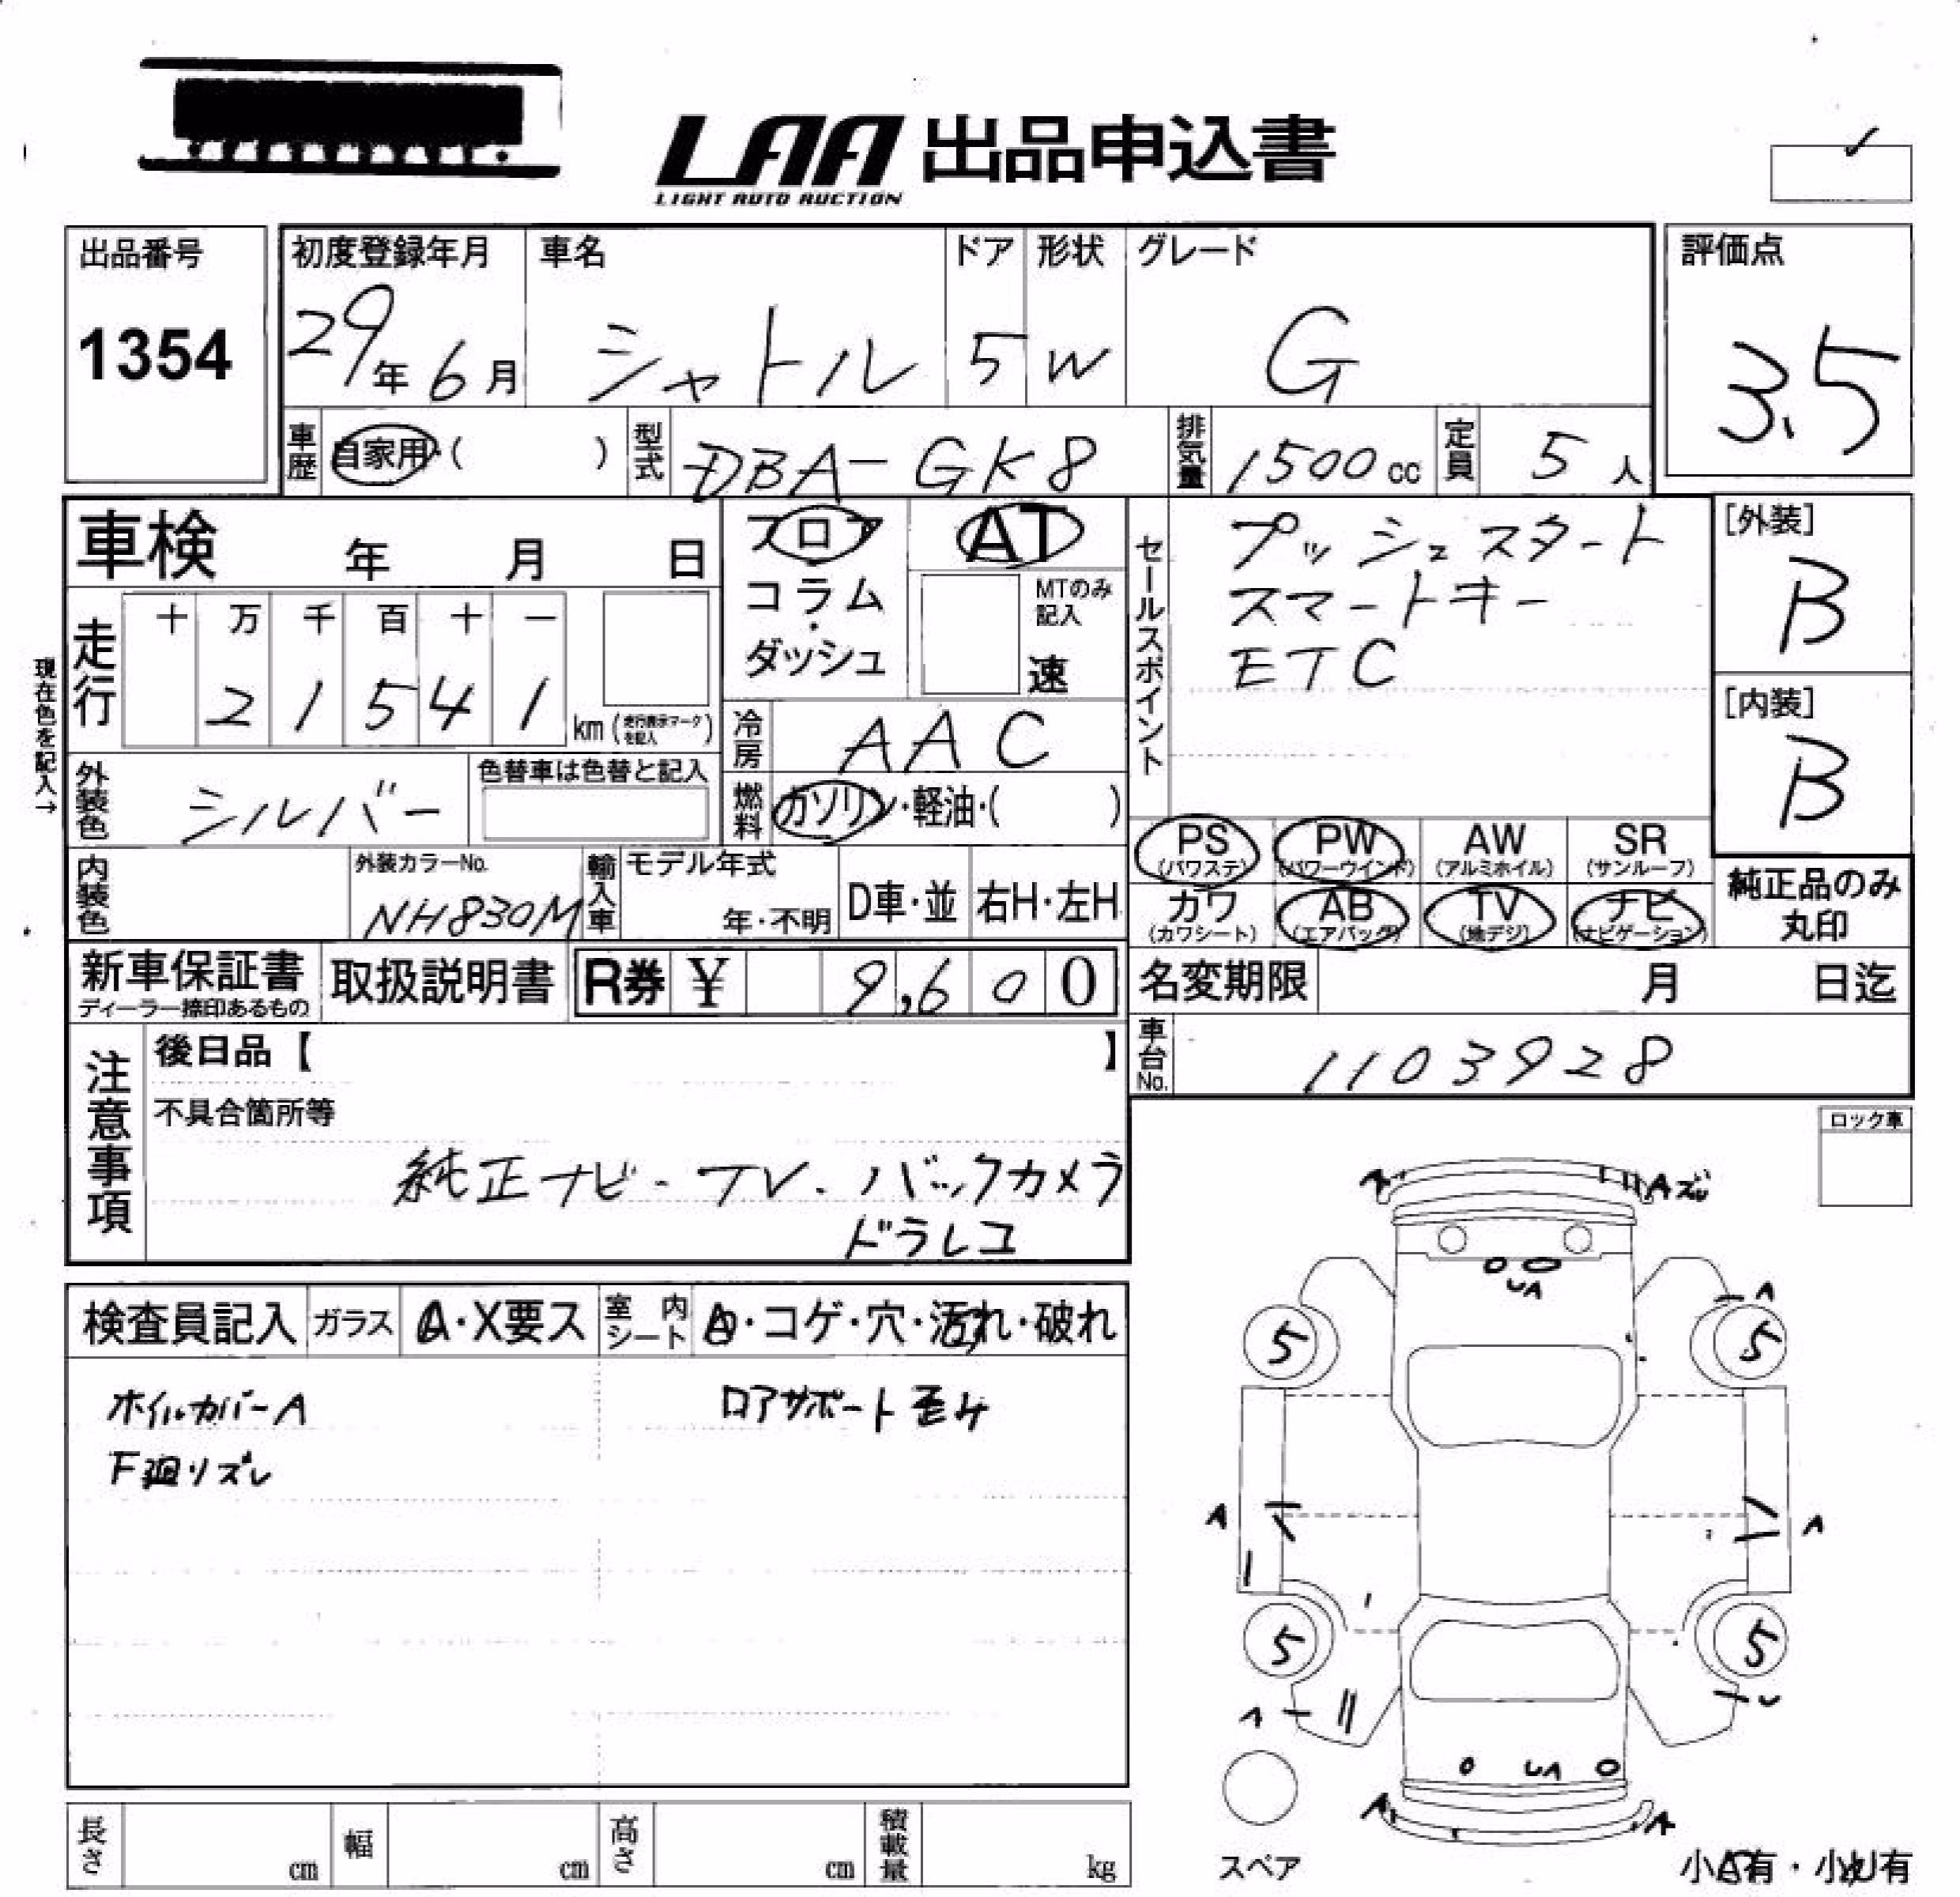 LAA 出品申込書
LIGHT AUTO AUCTION
出品番号
1354
初度登録年月
29年6月
車名
シャトル
ドア
5
形状
W
グレード
G
評価点
3.5
車歴 自家用・( )
型式 DBA-GK8
排気量 1500cc
定員 5人
車検 年 月 日
フロア
コラム・
ダッシュ
AT
MTのみ
記入
速
セールスポイント
プッシュスタート
スマートキー
ETC
[外装]
B
[内装]
B
現在色を記入→
走行
十 万 千 百 十 一
2 1 5 4 1
km(走行表示マークを記入)
冷房 AAC
外装色 シルバー
色替車は色替と記入
燃料 ガソリン・軽油・( )
PS (パワステ)
PW (パワーウインド)
AW (アルミホイル)
SR (サンルーフ)
内装色
外装カラーNo.
NH830M
輸入車
モデル年式
年・不明
D車・並
右H・左H
カワ (カワシート)
AB (エアバッグ)
TV (地デジ)
ナビ (ナビゲーション)
純正品のみ
丸印
新車保証書
ディーラー捺印あるもの
取扱説明書
R券 ¥ 9,600
名変期限 月 日迄
車台No. 1103928
注意事項
後日品【 】
不具合箇所等
純正ナビ・TV・バックカメラ
ドラレコ
ロック車
検査員記入
ガラス
A・X要ス
室内シート
A・コゲ・穴・汚れ・破れ
ホイルカバーA
ロアサポート歪み
下廻りズレ
A
Aズレ
UA
A
5
5
A
A
5
5
A
UA
A
A
スペア
小A有・小U有
長さ cm
幅 cm
高さ cm
積載量 kg